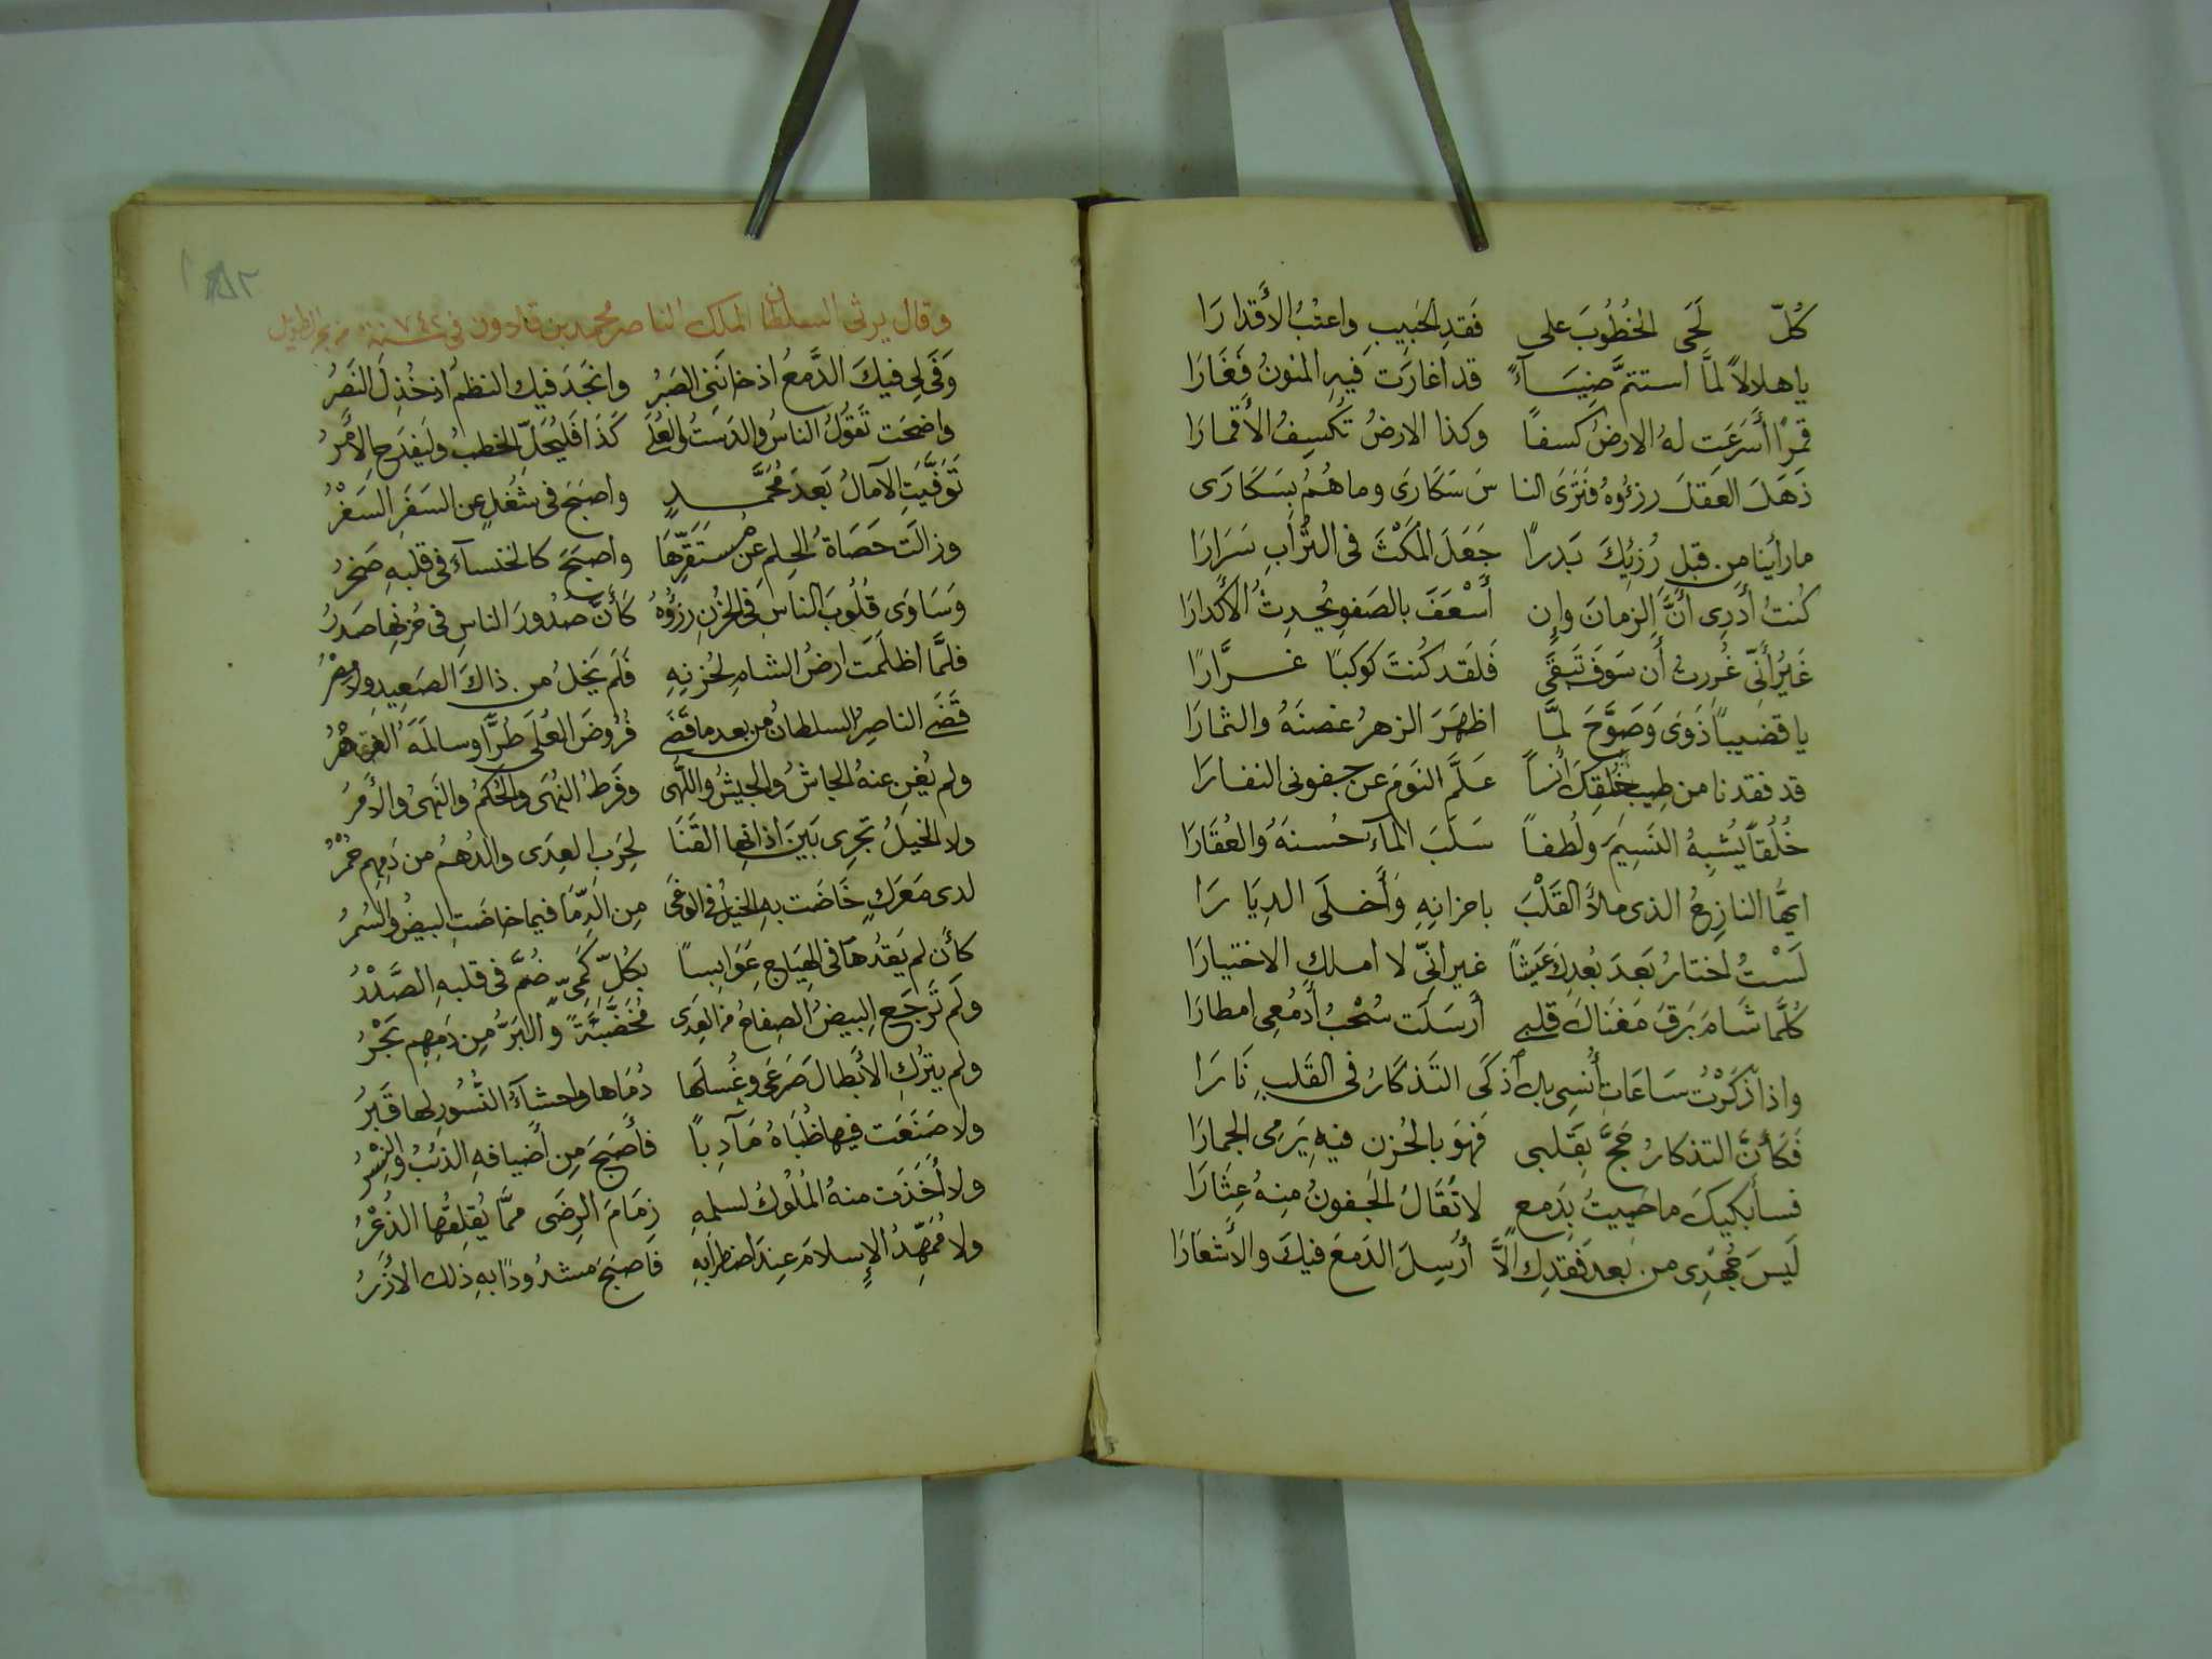 كُلّ لَحَى الخُطُوبَ على فَقدِ الحَبِيبِ واعتْبُ الأَقدارَا
ياهلالاً لمَّا استتمَّ ضِيَـاءً قد اغارَت فيهِ المنونُ فَغَارَا
قمرًا أَسَرَعَت لهُ الارضُ كسفًا وكذا الارضُ تُكسِفُ الأَقمارَا
ذَهَلَ العَقلَ رزؤُهُ فتَرَى النا سَ سَكَارَى وماهُمُ بسَكَارَى
مارأَينا من قبلِ رُزئِكَ بَدرًا جَعَلَ المَكْثَ فى التُّرَابِ سَرَارَا
كُنتُ أَدَرِى أَنَّ الزمانَ وإن أَسْعَفَ بالصَفوِ يُحدِثُ الأَكدارَا
غَيرُ أَنّى غُرِرتُ أَن سَوفَ تَبقَى فَلَقَد كُنتَ كوَكبًا غـرَّارًا
ياقضيبًا ذَوَى وَصَوَّحَ لمَّا اظهَرَ الزهرُ غصنَهُ والثمارَا
قد فقدنا من طِيبِ خُلقِكَ أُنسًا عَـلَّمَ النَومَ عن جـفونى النفـارَا
خُلُقًا يُشبِهُ النَسِيمَ ولُطفـًا سَلَبَ المآءَ حُسنَهُ والعُقَارَا
ايُّها النازِحُ الذى ملأَ القَلْبَ باحزانِهِ وَأَخـلَى الدِيَا رَا
لَسْتُ اختارُ بَعدَ بُعدِكَ عَيشًا غـيرانّى لا امـلكِ الاختيارَا
كُلَّما شَامَ بَرقَ مَغنَاكَ قلبى أَرسَلَت سُحْبُ أَدمُعِى امطارَا
واذا ذَكَرْتُ سَاعَاتِ أُنسِى بك أَذكَى التَذكَارُ فى القَلبِ نَارَا
فَكَأَنَّ التذكارُ حَجَّ بِقَلبى فَهوَ بالحُزنِ فيهِ يَرَمِى الجمارَا
فسأَبكيكَ ماحَيِيتُ بِدَمعِ لا تُقَالُ الجَفونُ مِنهُ عِثَارَا
لَيسَ جُهدِى من بعد فَقدِك الَّا أُرسِلَ الدَمعَ فيكَ والأَشعَارَا
وقال يرثى السلطان الملك الناصر محمد بن قلاوون فى سنة ٧٤٢ من بحر الطويل
وَفَى لِى فيكَ الدَّمعُ اذ خانَنِى الصَبرُ وانجَدَ فيك النظمُ اذ خُذِلَ النَصرُ
واضحَت تَقوُلُ الناسُ والدَستُ والعُلَى كَذَا فَليُجَلِّ الخطبُ وليَفدَحِ الأَمَرُ
تَوَفَّيَتِ الآمالُ بَعدَ مُحَمَّـدٍ واصبَحَ فى شُغلٍ عن السَفَرِ السَفرْ
وزالَت حَصَاةُ الحِلمِ عن مُستَقَرِّهَا واصبَحَ كالخنسآءَ فى قلبهِ صَخرُ
وَسَاوَى قُلُوبَ الناسِ فى الحُزنِ رزؤُهُ كَأَنَّ صُدُورَ الناسِ فى حُزنِها صَدرُ
فلمَّا اظلَمَت ارضُ الشامِ لحُزنِهِ فَلَم يَخلُ من ذاكَ الصَعيِدِ ولا مِصْرُ
قَضَى الناصِرُ السلطانُ من بعدِ ماقَضَى فُرُوضَ العُلَى طُرًّا وسالمَهُ الدَهْرُ
ولم يُغنِ عنهُ الجاشُ والجيشُ واللُهَى وفَرطُ النُهَى والحُكمُ والنَهىُ والأَمرُ
ولا الخيلُ تجرِى بَينَ اذانِها القَنَا لِحَربِ العِدَى والدُهمُ من دَمِهِم حُمْرُ
لدى مَعرَكٍ خَاضَت بهِ الخيلُ فى الوَغَى مِنَ الدِّمَا فيما خاضَتِ البيضُ والسُمرُ
كأَن لم يَقُدهَا فى الهِيَاجِ عَوَابِسًا بكُلِّ كَمِىّ ضُمَّ فى قلبهِ الصَّدْرُ
ولَم تَرجَعِ البِيضُ الصِفاحُ من العِدَى مُخَضَّبَةً والبَرُّ مِن دَمِهِم بَحْرُ
ولم يترُكِ الأَبطالَ صَرعَى وغُسلُهَا دُمَاها واحشآءُ النُسُورِ لها قَبرُ
ولا صَنَعَت فيها ظُبَاهُ مَآدِبًا فأَصبَحَ مِن أَضيافهِ الذئبُ والنِسْرُ
ولا أَخَذَت منهُ المُلُوكُ لسلمهِ زِمَامَ الرِضَى ممَّا يُقلِقُها الذُعْرُ
ولا مُمَهِّدُ الإِسلامَ عِندَ اضطرابهِ فاصبَحَ مَشدُودًا بهِ ذلك الأَزْرُ